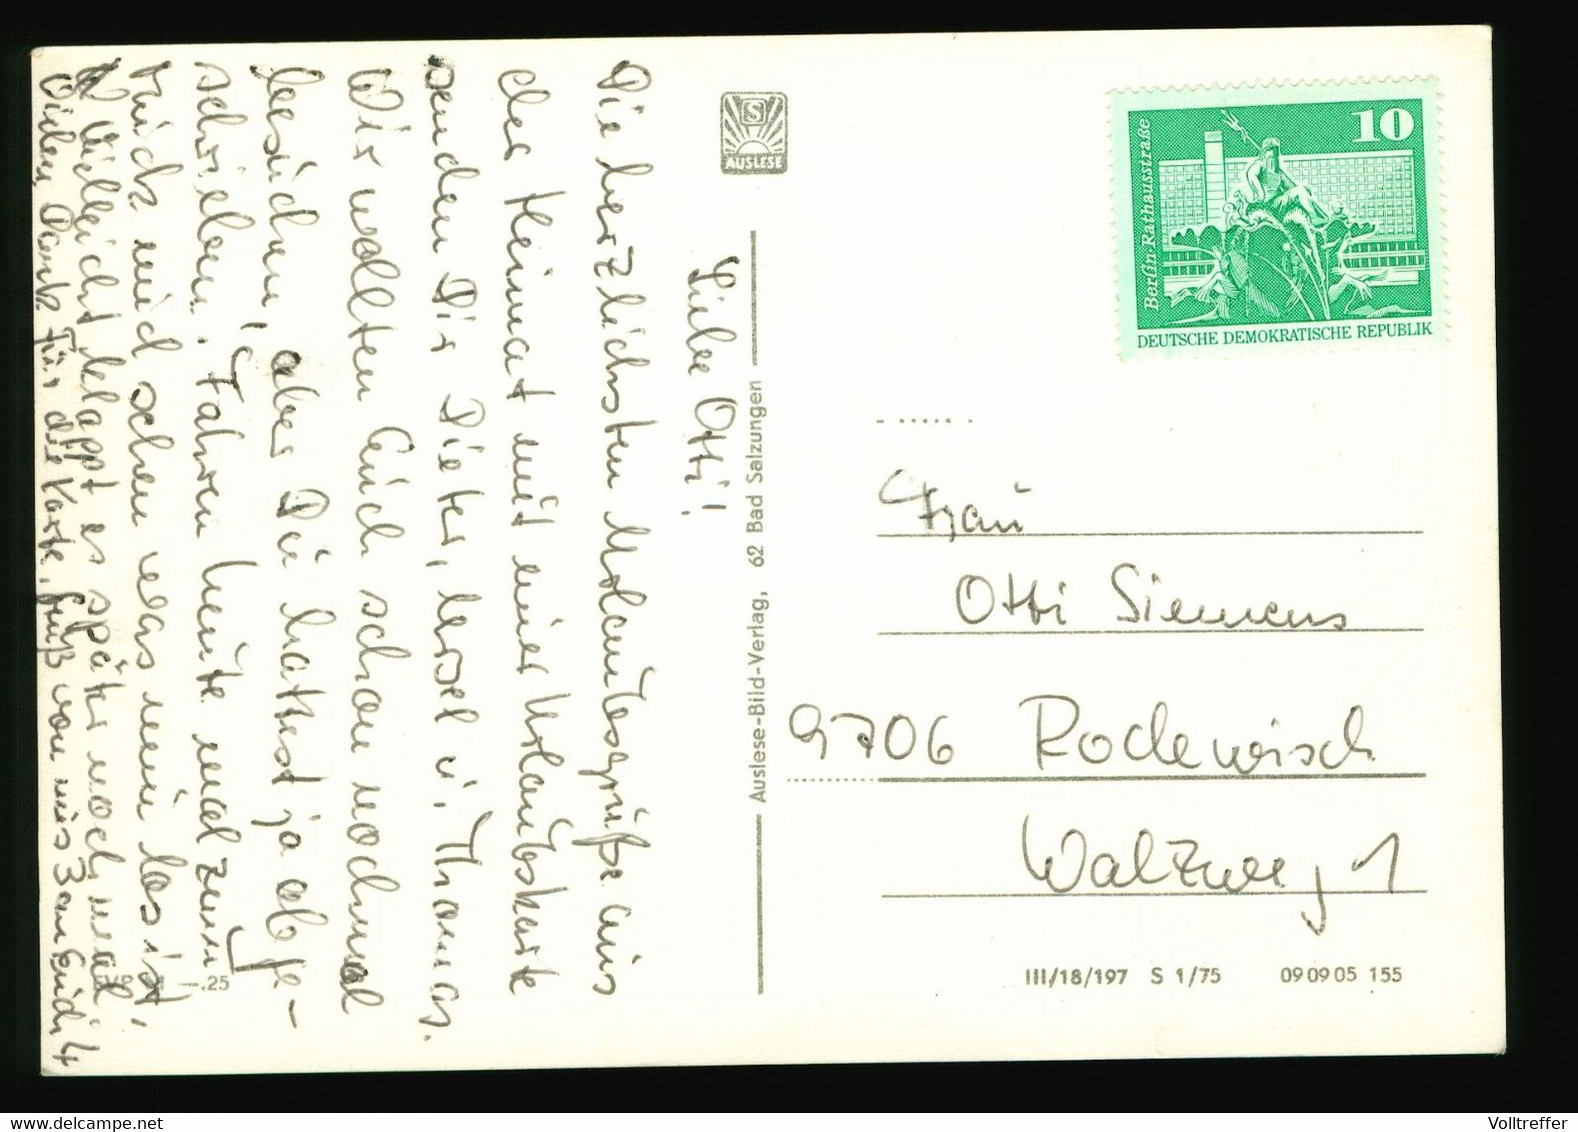 Liebe Otti!
Die herzlichsten Urlaubsgrüße aus
der Heimat mit einer Urlaubskarte
senden Dir Dieter, Ursel u. Thomas.
Wir wollten Euch schon nochmal
besuchen, aber Du hattest ja abge-
schrieben. Fahren heute mal zum
Mück und sehen was nun los ist,
Vielleicht klappt es später noch mal
Vielen Dank für die Karte, Gruß von uns 3 an Euch 4
-.25
S
AUSLESE
Auslese-Bild-Verlag, 62 Bad Salzungen
10
Berlin-Rathausstraße
DEUTSCHE DEMOKRATISCHE REPUBLIK
Frau
Otti Siemens
9706 Rodewisch
Walzweg 1
III/18/197 S 1/75 09 09 05 155
Volltreffer